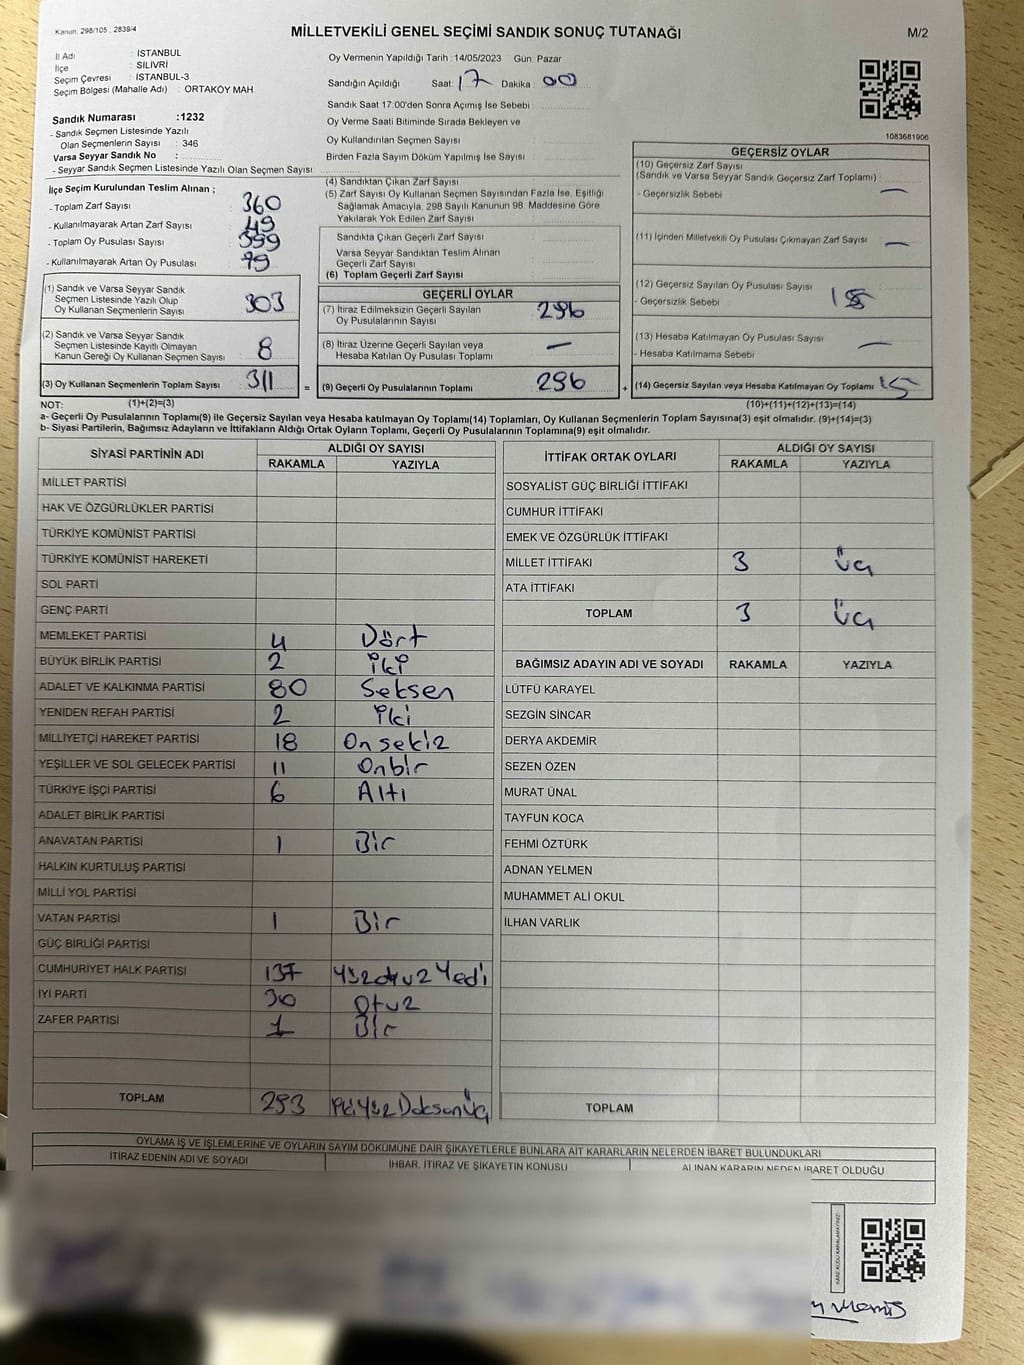 Kanun: 298/105 , 2839/4
MİLLETVEKİLİ GENEL SEÇİMİ SANDIK SONUÇ TUTANAĞI
M/2
İl Adı : İSTANBUL
İlçe : SİLİVRİ
Seçim Çevresi : İSTANBUL-3
Seçim Bölgesi (Mahalle Adı) : ORTAKÖY MAH.
Sandık Numarası :1232
- Sandık Seçmen Listesinde Yazılı
Olan Seçmenlerin Sayısı : 346
Varsa Seyyar Sandık No :
- Seyyar Sandık Seçmen Listesinde Yazılı Olan Seçmen Sayısı:
Oy Vermenin Yapıldığı Tarih :14/05/2023 Gün: Pazar
Sandığın Açıldığı Saat: 17 Dakika : 00
Sandık Saat 17:00'den Sonra Açımış İse Sebebi :
Oy Verme Saati Bitiminde Sırada Bekleyen ve
Oy Kullandırılan Seçmen Sayısı :
Birden Fazla Sayım Döküm Yapılmış İse Sayısı :
1083681906
İlçe Seçim Kurulundan Teslim Alınan ;
- Toplam Zarf Sayısı : 360
- Kullanılmayarak Artan Zarf Sayısı : 49
- Toplam Oy Pusulası Sayısı : 399
- Kullanılmayarak Artan Oy Pusulası : 79
(1) Sandık ve Varsa Seyyar Sandık
Seçmen Listesinde Yazılı Olup
Oy Kullanan Seçmenlerin Sayısı : 303
(2) Sandık ve Varsa Seyyar Sandık
Seçmen Listesinde Kayıtlı Olmayan
Kanun Gereği Oy Kullanan Seçmen Sayısı : 8
(3) Oy Kullanan Seçmenlerin Toplam Sayısı : 311
(4) Sandıktan Çıkan Zarf Sayısı :
(5) Zarf Sayısı Oy Kullanan Seçmen Sayısından Fazla İse, Eşitliği
Sağlamak Amacıyla, 298 Sayılı Kanunun 98. Maddesine Göre
Yakılarak Yok Edilen Zarf Sayısı :
Sandıkta Çıkan Geçerli Zarf Sayısı :
Varsa Seyyar Sandıktan Teslim Alınan
Geçerli Zarf Sayısı :
(6) Toplam Geçerli Zarf Sayısı :
GEÇERLİ OYLAR
(7) İtiraz Edilmeksizin Geçerli Sayılan
Oy Pusulalarının Sayısı : 296
(8) İtiraz Üzerine Geçerli Sayılan veya
Hesaba Katılan Oy Pusulası Toplamı : —
= (9) Geçerli Oy Pusulalarının Toplamı : 296
GEÇERSİZ OYLAR
(10) Geçersiz Zarf Sayısı
(Sandık ve Varsa Seyyar Sandık Geçersiz Zarf Toplamı) : —
- Geçersizlik Sebebi :
(11) İçinden Milletvekili Oy Pusulası Çıkmayan Zarf Sayısı : —
(12) Geçersiz Sayılan Oy Pusulası Sayısı :
- Geçersizlik Sebebi :
(13) Hesaba Katılmayan Oy Pusulası Sayısı : —
- Hesaba Katılmama Sebebi :
+ (14) Geçersiz Sayılan veya Hesaba Katılmayan Oy Toplamı : 15
NOT: (1)+(2)=(3) (10)+(11)+(12)+(13)=(14)
a- Geçerli Oy Pusulalarının Toplamı(9) ile Geçersiz Sayılan veya Hesaba katılmayan Oy Toplamı(14) Toplamları, Oy Kullanan Seçmenlerin Toplam Sayısına(3) eşit olmalıdır. (9)+(14)=(3)
b- Siyasi Partilerin, Bağımsız Adayların ve İttifakların Aldığı Ortak Oyların Toplamı, Geçerli Oy Pusulalarının Toplamına(9) eşit olmalıdır.
SİYASİ PARTİNİN ADI ALDIĞI OY SAYISI
RAKAMLA YAZIYLA
MİLLET PARTİSİ
HAK VE ÖZGÜRLÜKLER PARTİSİ
TÜRKİYE KOMÜNİST PARTİSİ
TÜRKİYE KOMÜNİST HAREKETİ
SOL PARTİ
GENÇ PARTİ
MEMLEKET PARTİSİ 4 Dört
BÜYÜK BİRLİK PARTİSİ 2 iki
ADALET VE KALKINMA PARTİSİ 80 Seksen
YENİDEN REFAH PARTİSİ 2 iki
MİLLİYETÇİ HAREKET PARTİSİ 18 On sekiz
YEŞİLLER VE SOL GELECEK PARTİSİ 11 Onbir
TÜRKİYE İŞÇİ PARTİSİ 6 Altı
ADALET BİRLİK PARTİSİ
ANAVATAN PARTİSİ 1 Bir
HALKIN KURTULUŞ PARTİSİ
MİLLİ YOL PARTİSİ
VATAN PARTİSİ 1 Bir
GÜÇ BİRLİĞİ PARTİSİ
CUMHURİYET HALK PARTİSİ 137 Yüz otuz Yedi
İYİ PARTİ 30 Otuz
ZAFER PARTİSİ 1 Bir
TOPLAM 293 iki Yüz Doksan Üç
İTTİFAK ORTAK OYLARI ALDIĞI OY SAYISI
RAKAMLA YAZIYLA
SOSYALİST GÜÇ BİRLİĞİ İTTİFAKI
CUMHUR İTTİFAKI
EMEK VE ÖZGÜRLÜK İTTİFAKI
MİLLET İTTİFAKI 3 Üç
ATA İTTİFAKI
TOPLAM 3 Üç
BAĞIMSIZ ADAYIN ADI VE SOYADI RAKAMLA YAZIYLA
LÜTFÜ KARAYEL
SEZGİN SİNCAR
DERYA AKDEMİR
SEZEN ÖZEN
MURAT ÜNAL
TAYFUN KOCA
FEHMİ ÖZTÜRK
ADNAN YELMEN
MUHAMMET ALİ OKUL
İLHAN VARLIK
TOPLAM
OYLAMA İŞ VE İŞLEMLERİNE VE OYLARIN SAYIM DÖKÜMÜNE DAİR ŞİKAYETLERLE BUNLARA AİT KARARLARIN NELERDEN İBARET BULUNDUKLARI
İTİRAZ EDENİN ADI VE SOYADI İHBAR, İTİRAZ VE ŞİKAYETİN KONUSU ALINAN KARARIN NEDEN İBARET OLDUĞU
KARE KODU KARALAMAYINIZ!